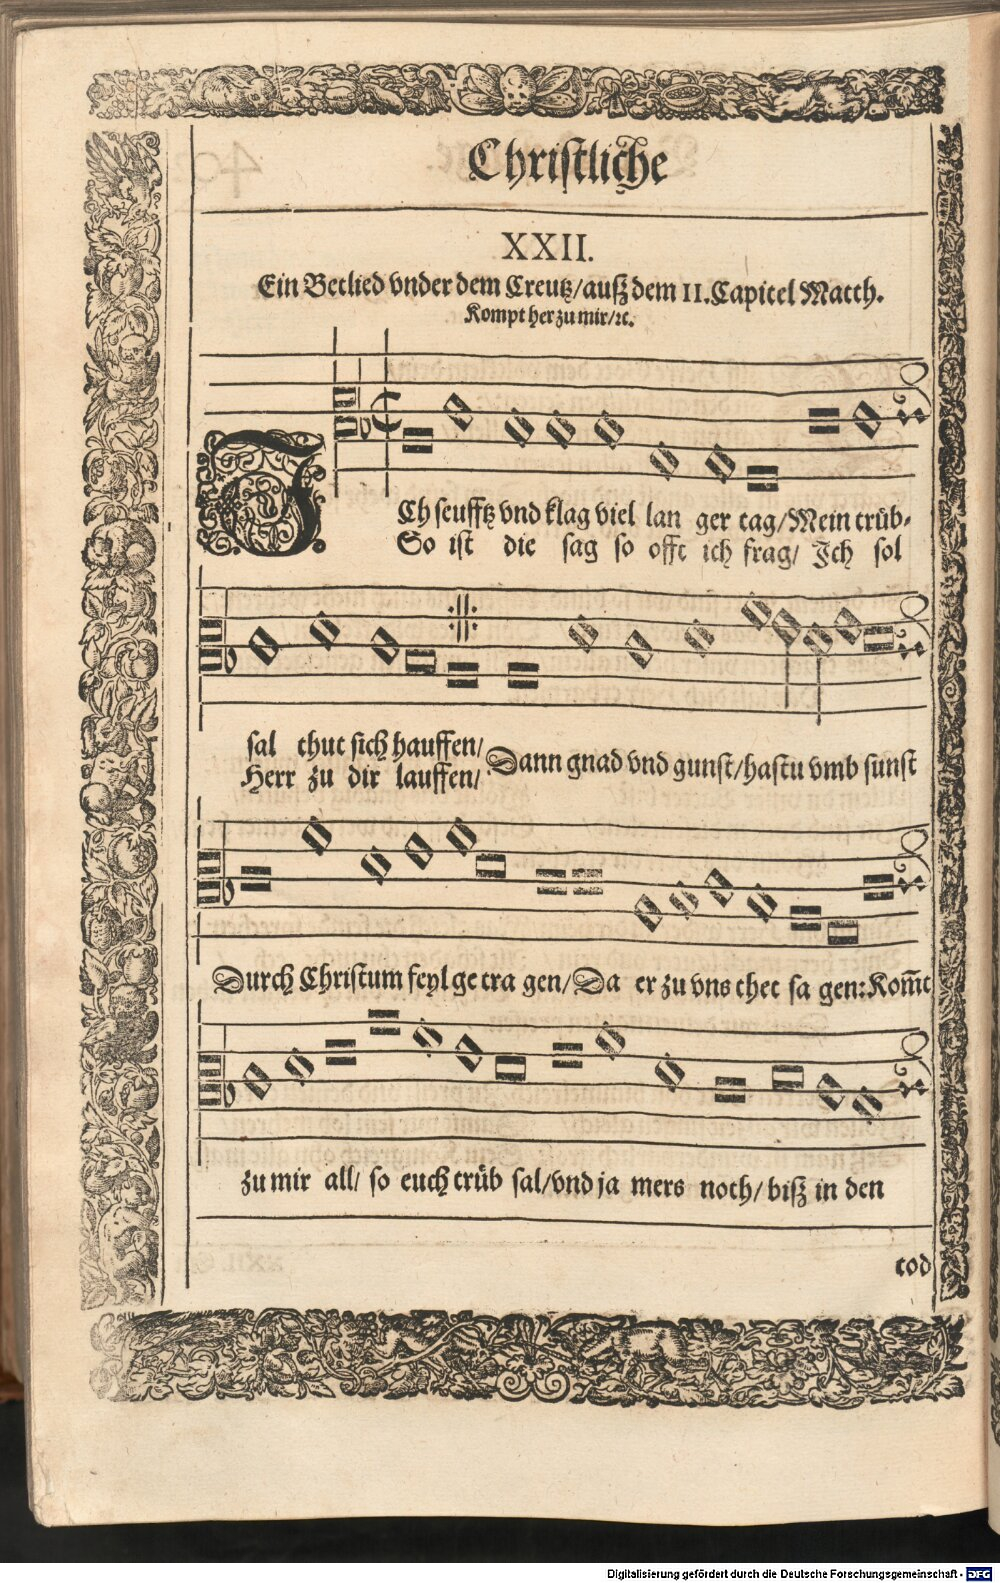 Christliche
XXII.
Ein Betlied vnder dem Creutz/auß dem 11.Capitel Matth.
Kompt her zu mir/ꝛc.
ICh seufftz vnd klag viel lan ger tag/Mein trüb-
So ist die sag so offt ich frag/ Ich sol
sal thut sich hauffen/
Herr zu dir lauffen/
Dann gnad vnd gunst/hastu vmb sunst
Durch Christum feyl ge tra gen/Da er zu vns thet sa gen:Kom̅t
zu mir all/ so euch trüb sal/vnd ja mers noch/ biß in den
tod
Digitalisierung gefördert durch die Deutsche Forschungsgemeinschaft - DFG